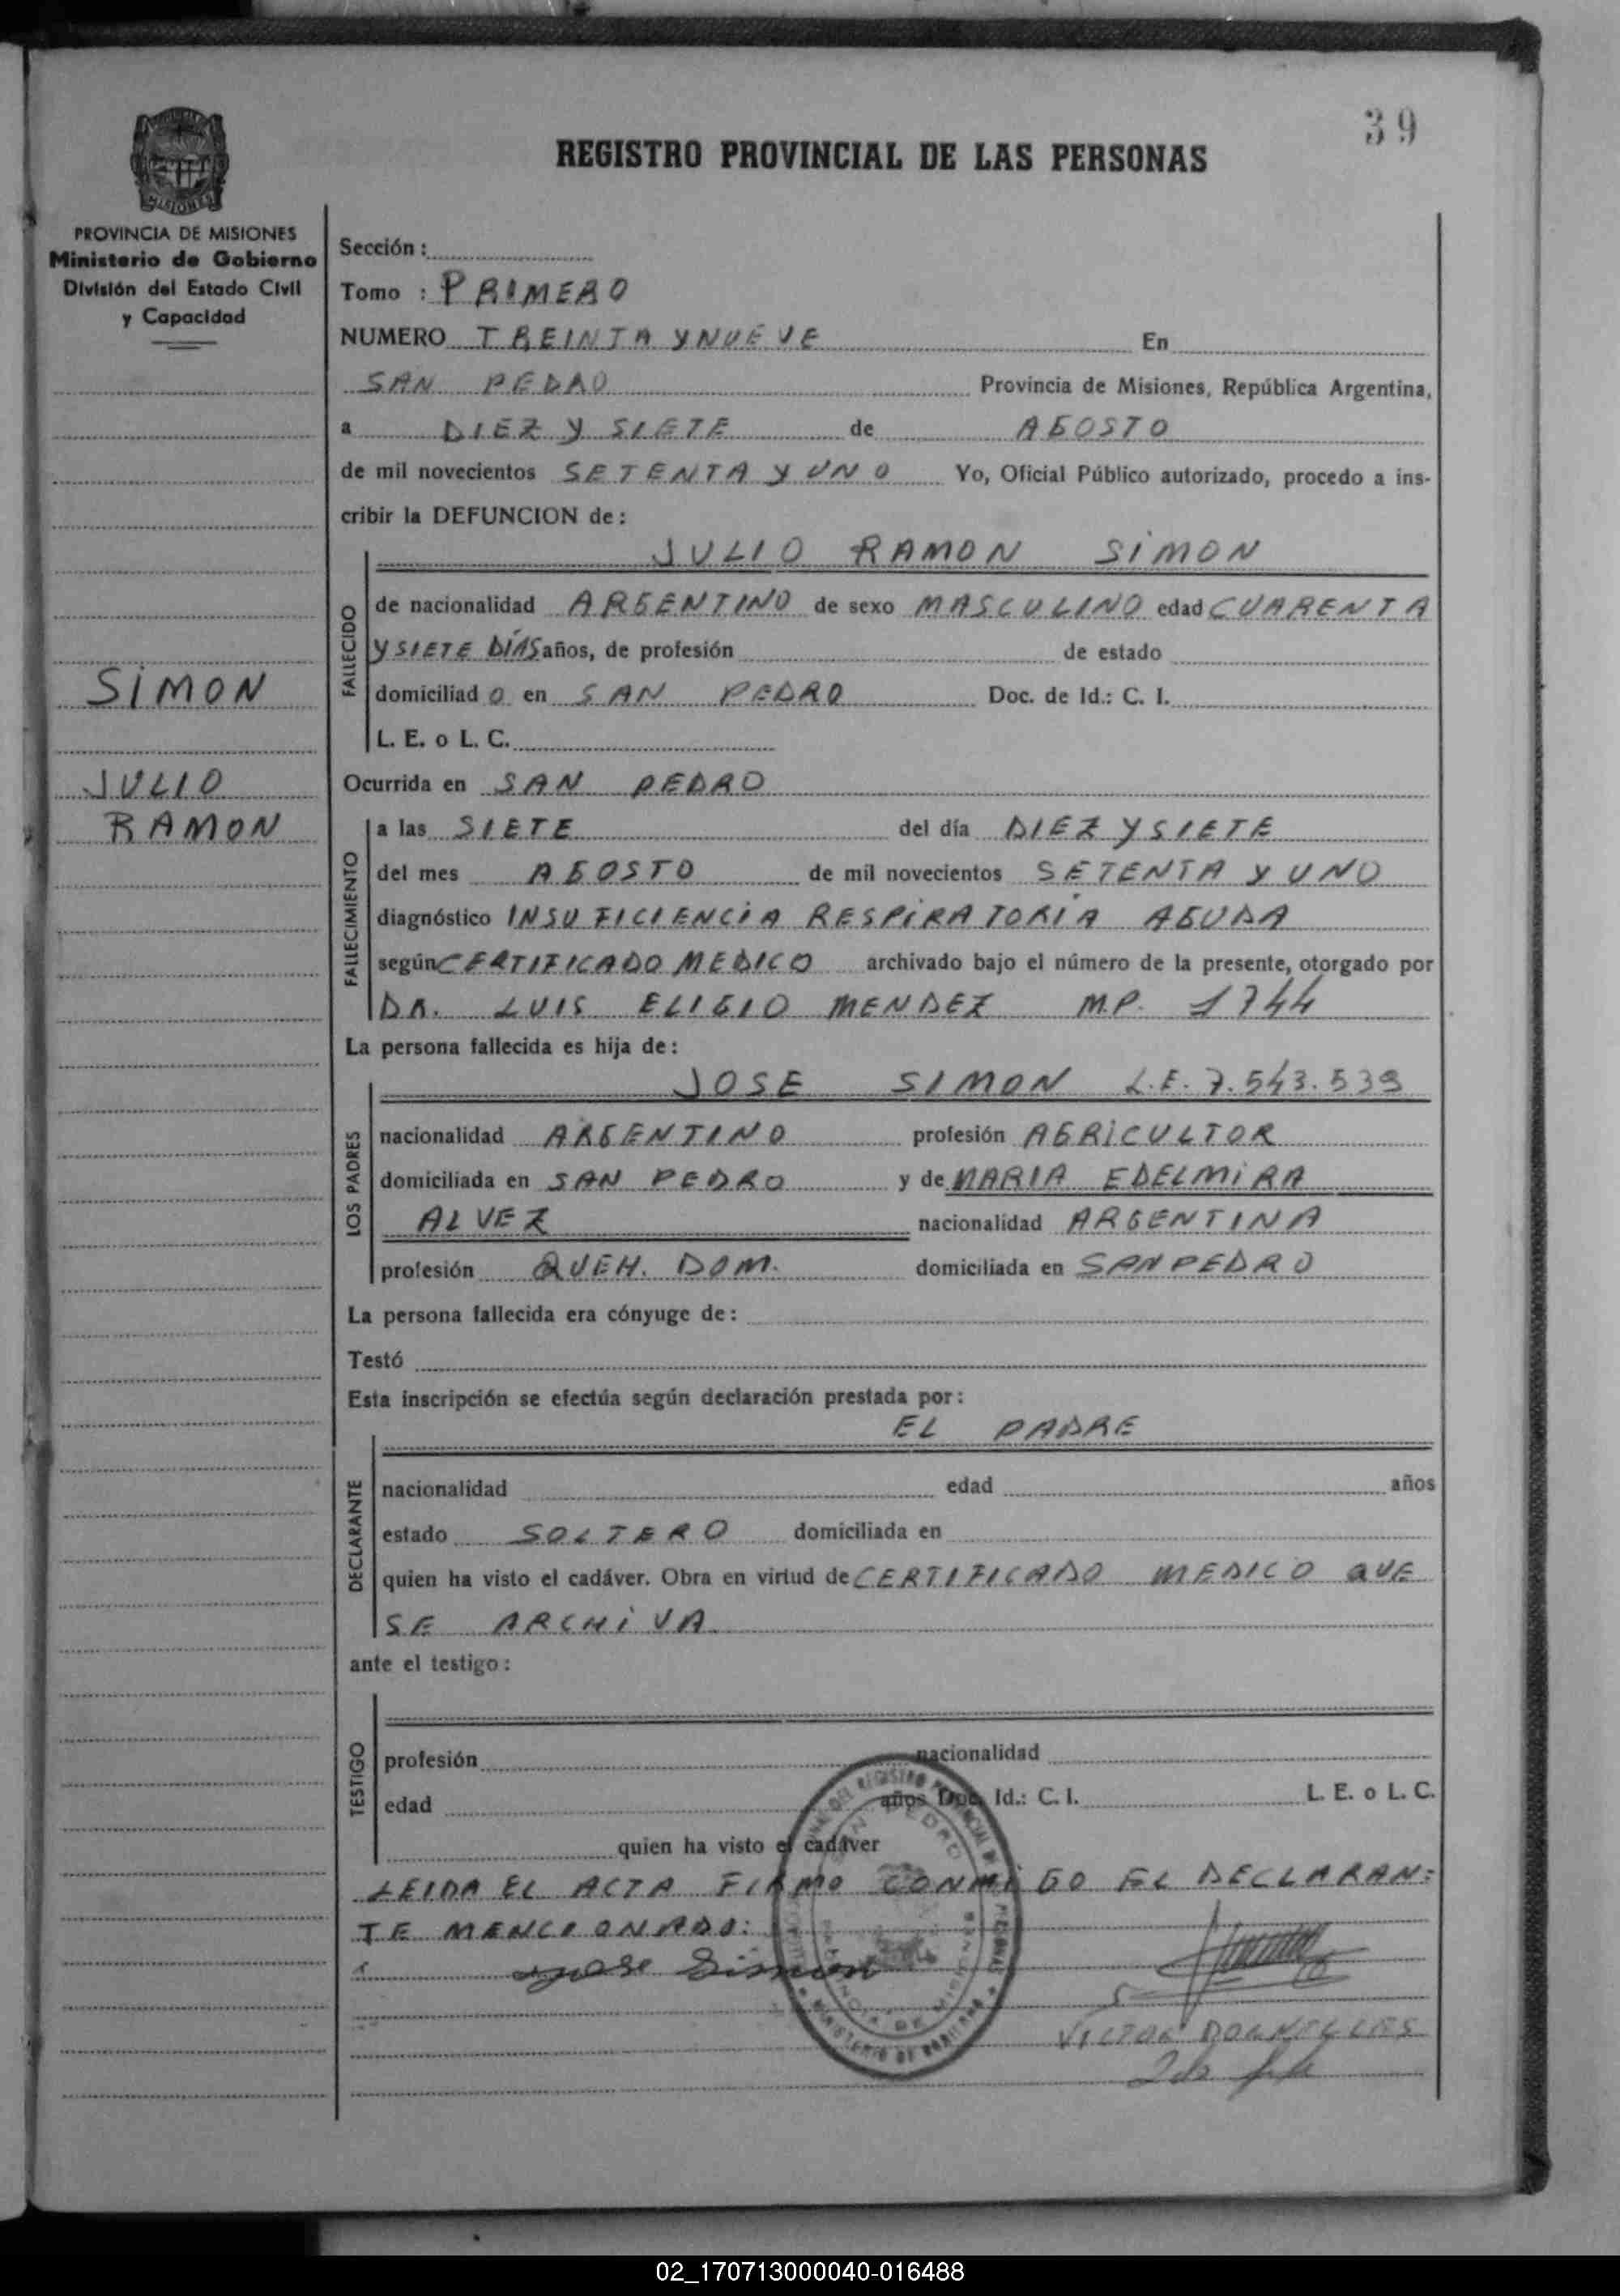 39
REGISTRO PROVINCIAL DE LAS PERSONAS
MISIONES
PROVINCIA DE MISIONES
Ministerio de Gobierno
División del Estado Civil
y Capacidad
SIMON
JULIO
RAMON
Sección :
Tomo : PRIMERO
NUMERO TREINTA Y NUEVE En
SAN PEDRO Provincia de Misiones, República Argentina,
a DIEZ Y SIETE de AGOSTO
de mil novecientos SETENTA Y UNO Yo, Oficial Público autorizado, procedo a ins-
cribir la DEFUNCION de :
JULIO RAMON SIMON
FALLECIDO
de nacionalidad ARGENTINO de sexo MASCULINO edad CUARENTA
Y SIETE DÍAS años, de profesión de estado
domiciliad O en SAN PEDRO Doc. de Id.: C. I.
L. E. o L. C.
Ocurrida en SAN PEDRO
FALLECIMIENTO
a las SIETE del día DIEZ Y SIETE
del mes AGOSTO de mil novecientos SETENTA Y UNO
diagnóstico INSUFICIENCIA RESPIRATORIA AGUDA
según CERTIFICADO MEDICO archivado bajo el número de la presente, otorgado por
DR. LUIS ELIGIO MENDEZ M.P. 1744
La persona fallecida es hija de :
JOSE SIMON L.E. 7.543.539
LOS PADRES
nacionalidad ARGENTINO profesión AGRICULTOR
domiciliada en SAN PEDRO y de MARIA EDELMIRA
ALVEZ nacionalidad ARGENTINA
profesión QUEH. DOM. domiciliada en SAN PEDRO
La persona fallecida era cónyuge de :
Testó
Esta inscripción se efectúa según declaración prestada por :
EL PADRE
DECLARANTE
nacionalidad edad años
estado SOLTERO domiciliada en
quien ha visto el cadáver. Obra en virtud de CERTIFICADO MEDICO QUE
SE ARCHIVA
ante el testigo :
TESTIGO
profesión nacionalidad
edad años Doc. Id.: C. I. L. E. o L. C.
quien ha visto el cadáver
LEIDA EL ACTA FIRMO CONMIGO EL DECLARAN:
TE MENCIONADO:
Jose Simon
VICTOR DORNELLES
02_170713000040-016488